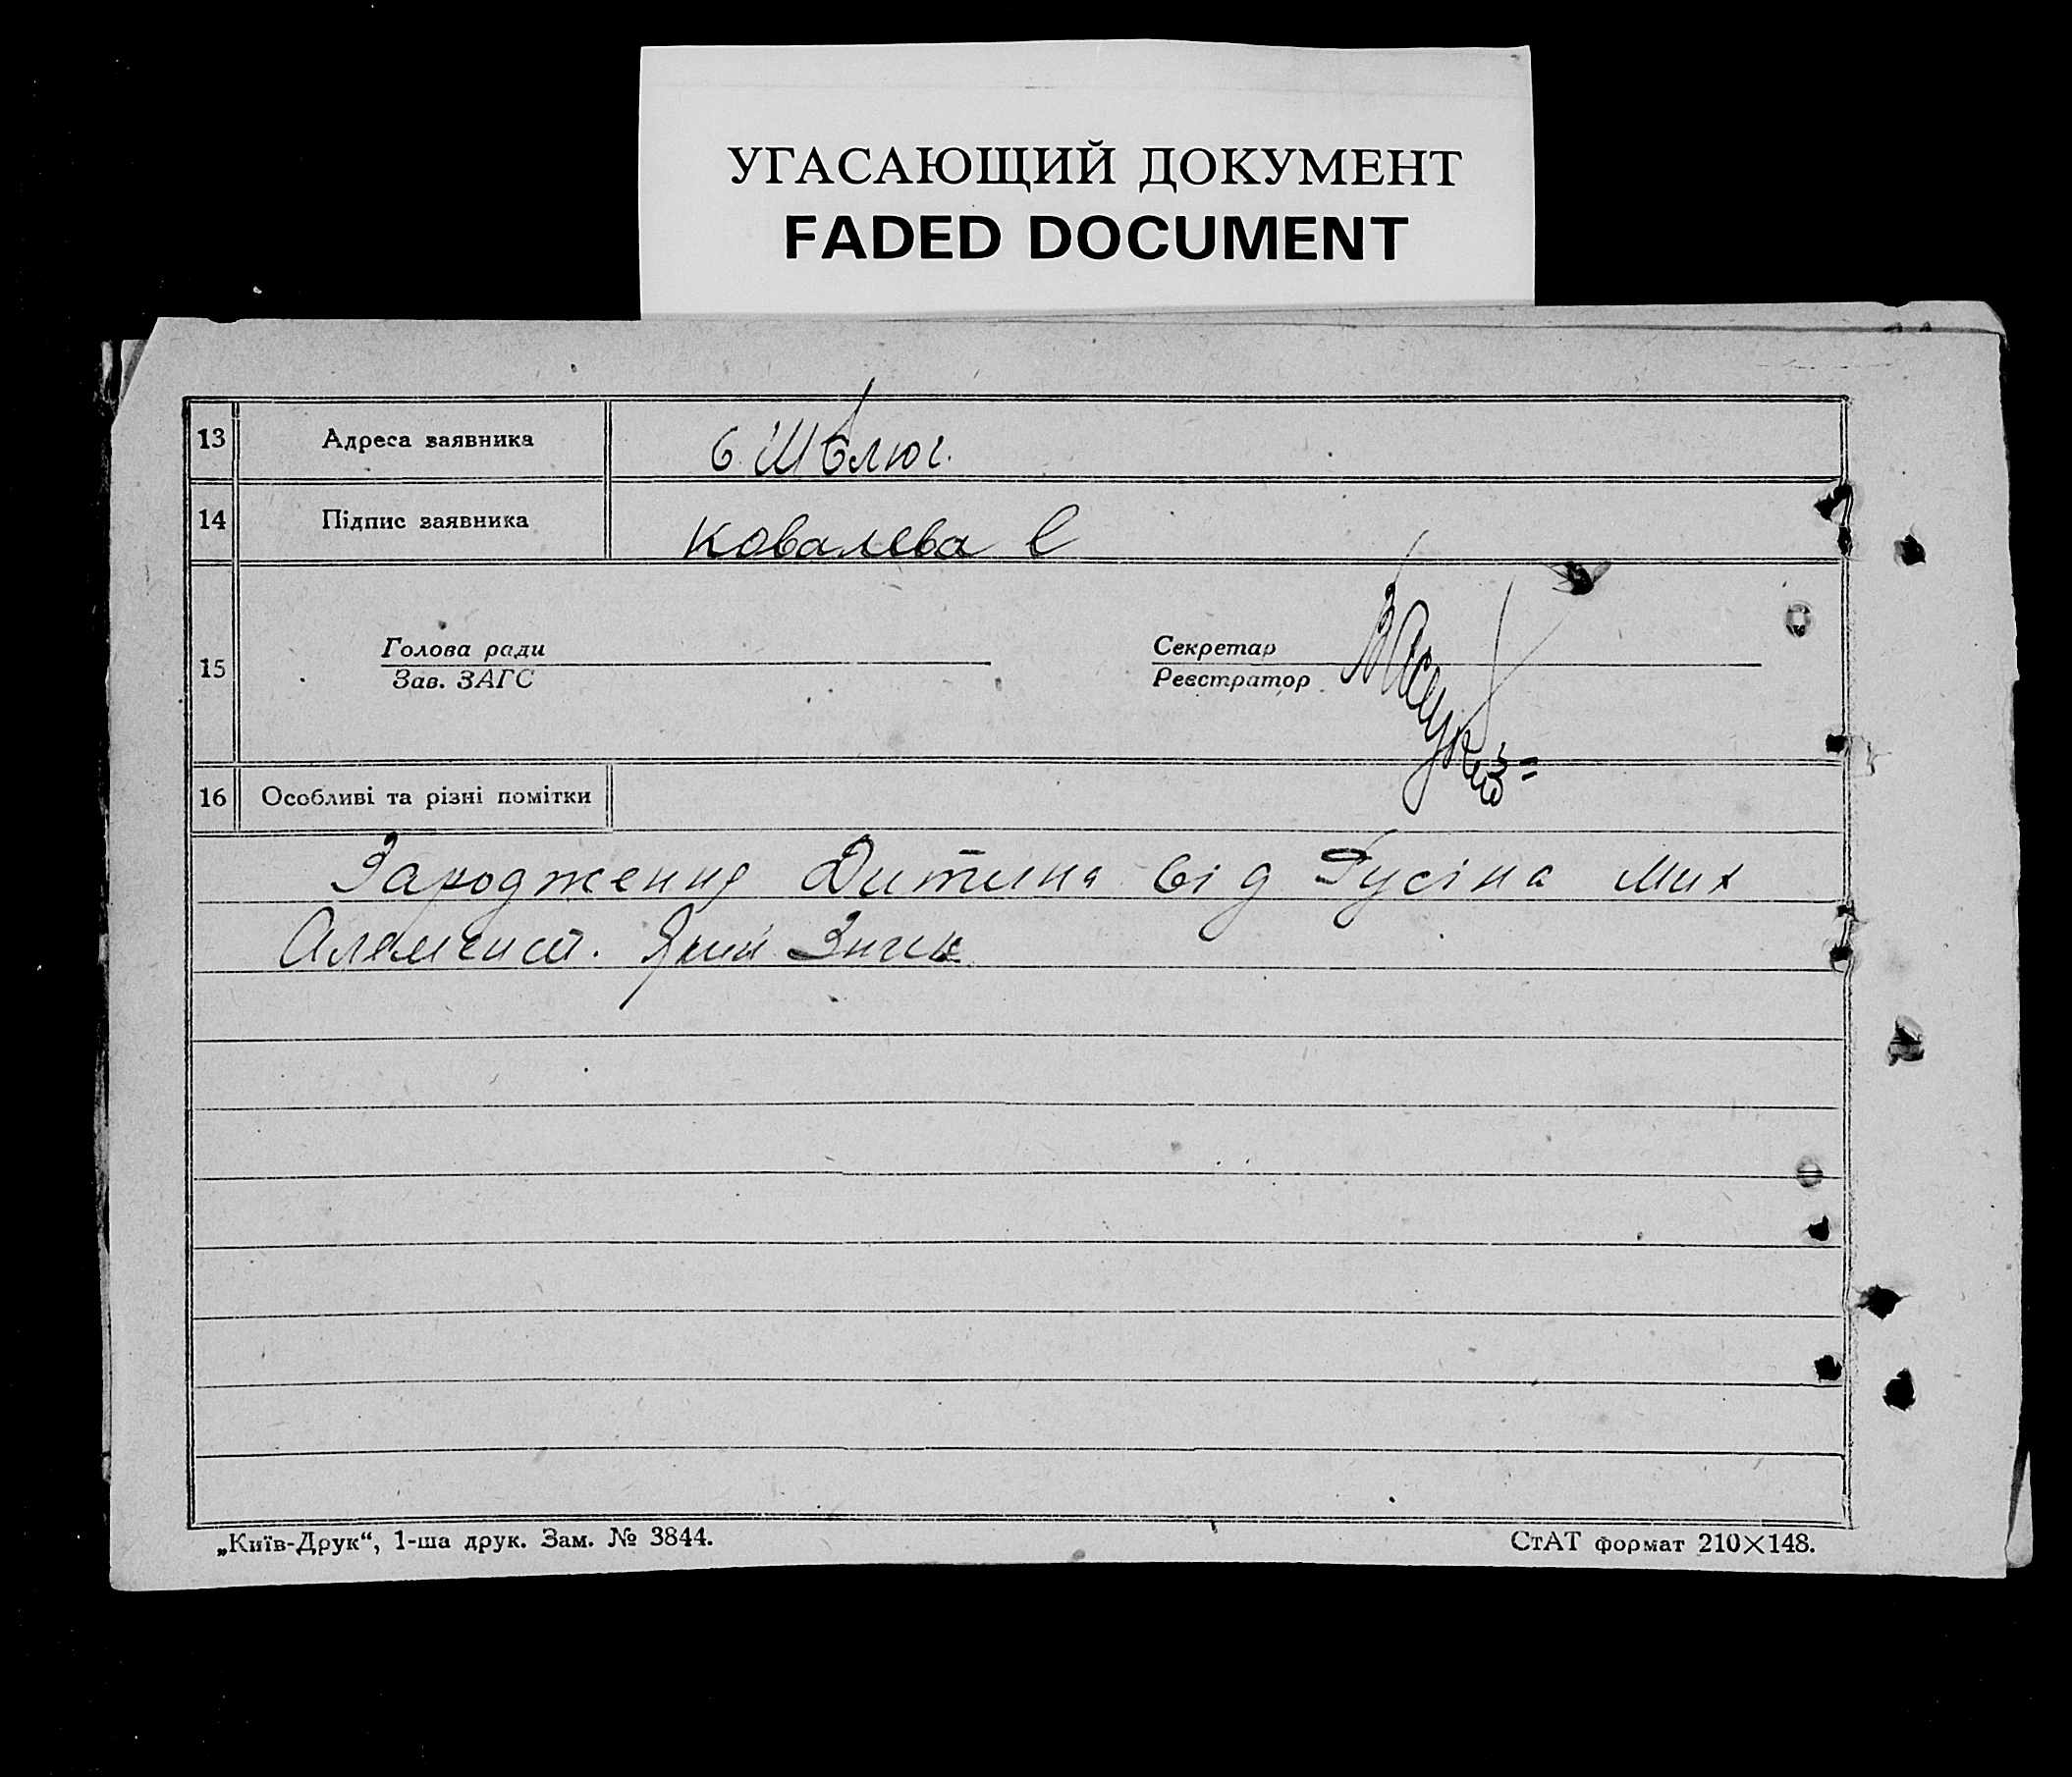 УГАСАЮЩИЙ ДОКУМЕНТ
FADED DOCUMENT
13 Адреса заявника
14 Підпис заявника Ковалева Є
15 Голова ради Секретар
Зав. ЗАГС Реєстратор
16 Особливі та різні помітки
Зародження Дитина від Гусіна Мих
„Київ-Друк“, 1-ша друк. Зам. № 3844. СтАТ формат 210×148.